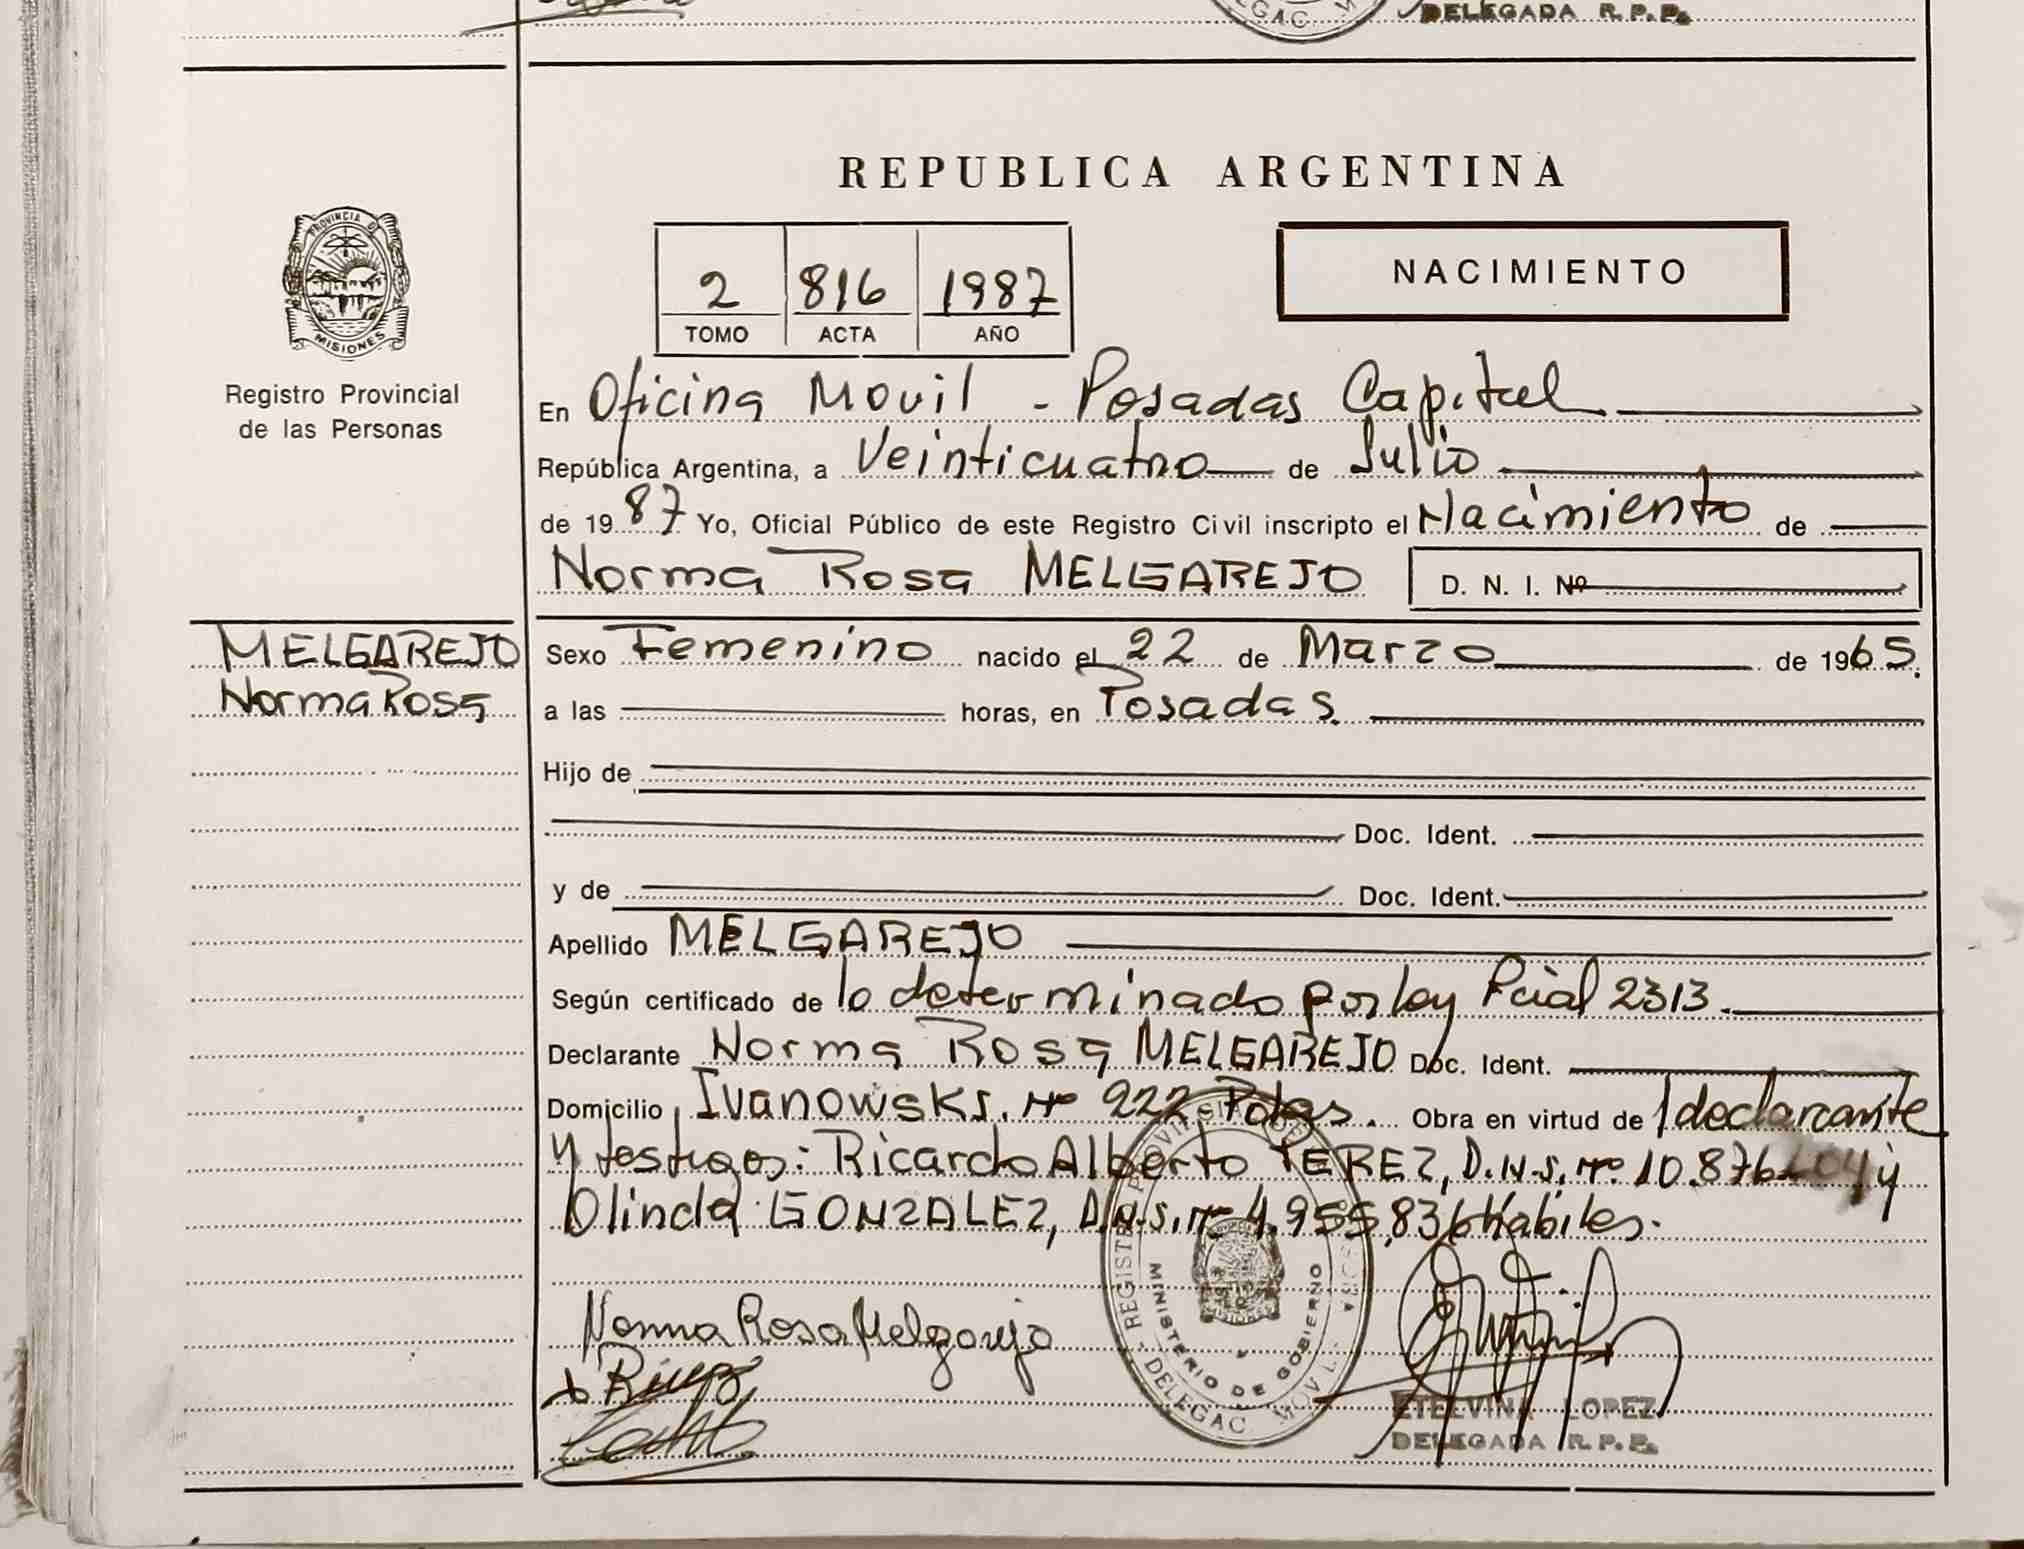 DELEGAC. M
DELEGADA R.P.P.
REPUBLICA ARGENTINA
PROVINCIA DE
MISIONES
Registro Provincial
de las Personas
2 816 1987
TOMO ACTA AÑO
NACIMIENTO
En Oficina Movil - Posadas Capital
República Argentina, a Veinticuatro de Julio
de 19 87 Yo, Oficial Público de este Registro Civil inscripto el Nacimiento de
Norma Rosa MELGAREJO D. N. I. Nº
MELGAREJO
Norma Rosa
Sexo Femenino nacido el 22 de Marzo de 1965.
a las horas, en Posadas.
Hijo de
Doc. Ident.
y de Doc. Ident.
Apellido MELGAREJO
Según certificado de lo determinado por ley Pcial 2313.
Declarante Norma Rosa MELGAREJO Doc. Ident.
Domicilio Ivanowski. Nº 222 Pdas. Obra en virtud de l declarante
y testigos: Ricardo Alberto PEREZ, D.N.I. Nº 10.876 y
Olinda GONZALEZ, D.N.I. Nº 4.955.836 Habiles.
Norma Rosa Melgarejo
REGISTRO PROVINCIAL DE
MINISTERIO DE GOBIERNO
DELEGAC. MOVIL
ETELVINA LOPEZ
DELEGADA R.P.P.